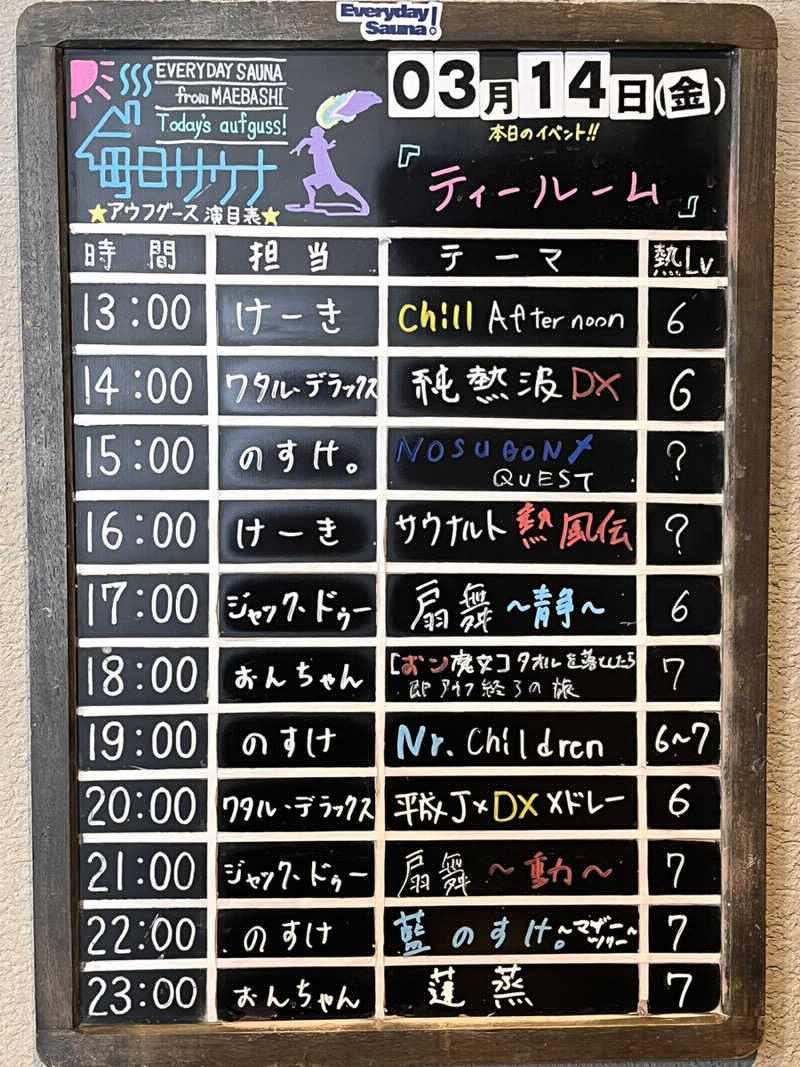 Everyday
Sauna!
EVERYDAY SAUNA
from MAEBASHI
Today's aufguss!
毎日サウナ
★アウフグース演目表★
03月14日(金)
本日のイベント!!
『ティールーム』
時間 担当 テーマ 熱Lv
13:00 けーき Chill Afternoon 6
14:00 ワタル・デラックス 純熱波DX 6
15:00 のすけ。 NOSUGON
QUEST ?
16:00 けーき サウナルト熱風伝 ?
17:00 ジャック・ドゥー 扇舞～静～ 6
18:00 おんちゃん [ボン魔女]タオルを落としたら
即アウフ終了の旅 7
19:00 のすけ Nr.Children 6~7
20:00 ワタル・デラックス 平成J×DX×メドレー 6
21:00 ジャック・ドゥー 扇舞～動～ 7
22:00 のすけ 藍のすけ。～マザー
ツリー～ 7
23:00 おんちゃん 蓮蒸 7